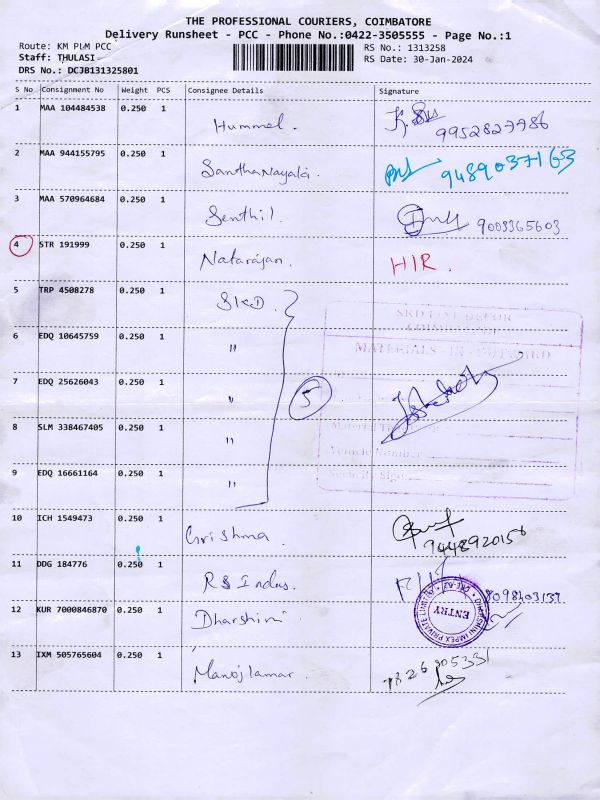 THE PROFESSIONAL COURIERS, COIMBATORE
Delivery Runsheet - PCC - Phone No.:0422-3505555 - Page No.:1
Route: KM PLM PCC
RS No.: 1313258
Staff: THULASI
RS Date: 30-Jan-2024
DRS No.: DCJB131325801
S No Consignment No Weight PCS Consignee Details Signature
1 MAA 104484538 0.250 1 Hummel. 9952827986
2 MAA 944155795 0.250 1 SanthaNayaki 9489037163
3 MAA 570964684 0.250 1 Senthil. 9003365603
4 STR 191999 0.250 1 Natarajan. HIR.
5 TRP 4508278 0.250 1 SKD.
6 EDQ 10645759 0.250 1 "
7 EDQ 25626043 0.250 1 " 5
8 SLM 338467405 0.250 1 "
9 EDQ 16661164 0.250 1 "
10 ICH 1549473 0.250 1 Grishma. 9448920156
11 DDG 184776 0.250 1 8098403139
12 KUR 7000846870 0.250 1 Dharshini
DHARSHINI IMPEX PRIVATE LIMITED
ENTRY
13 IXM 505765604 0.250 1